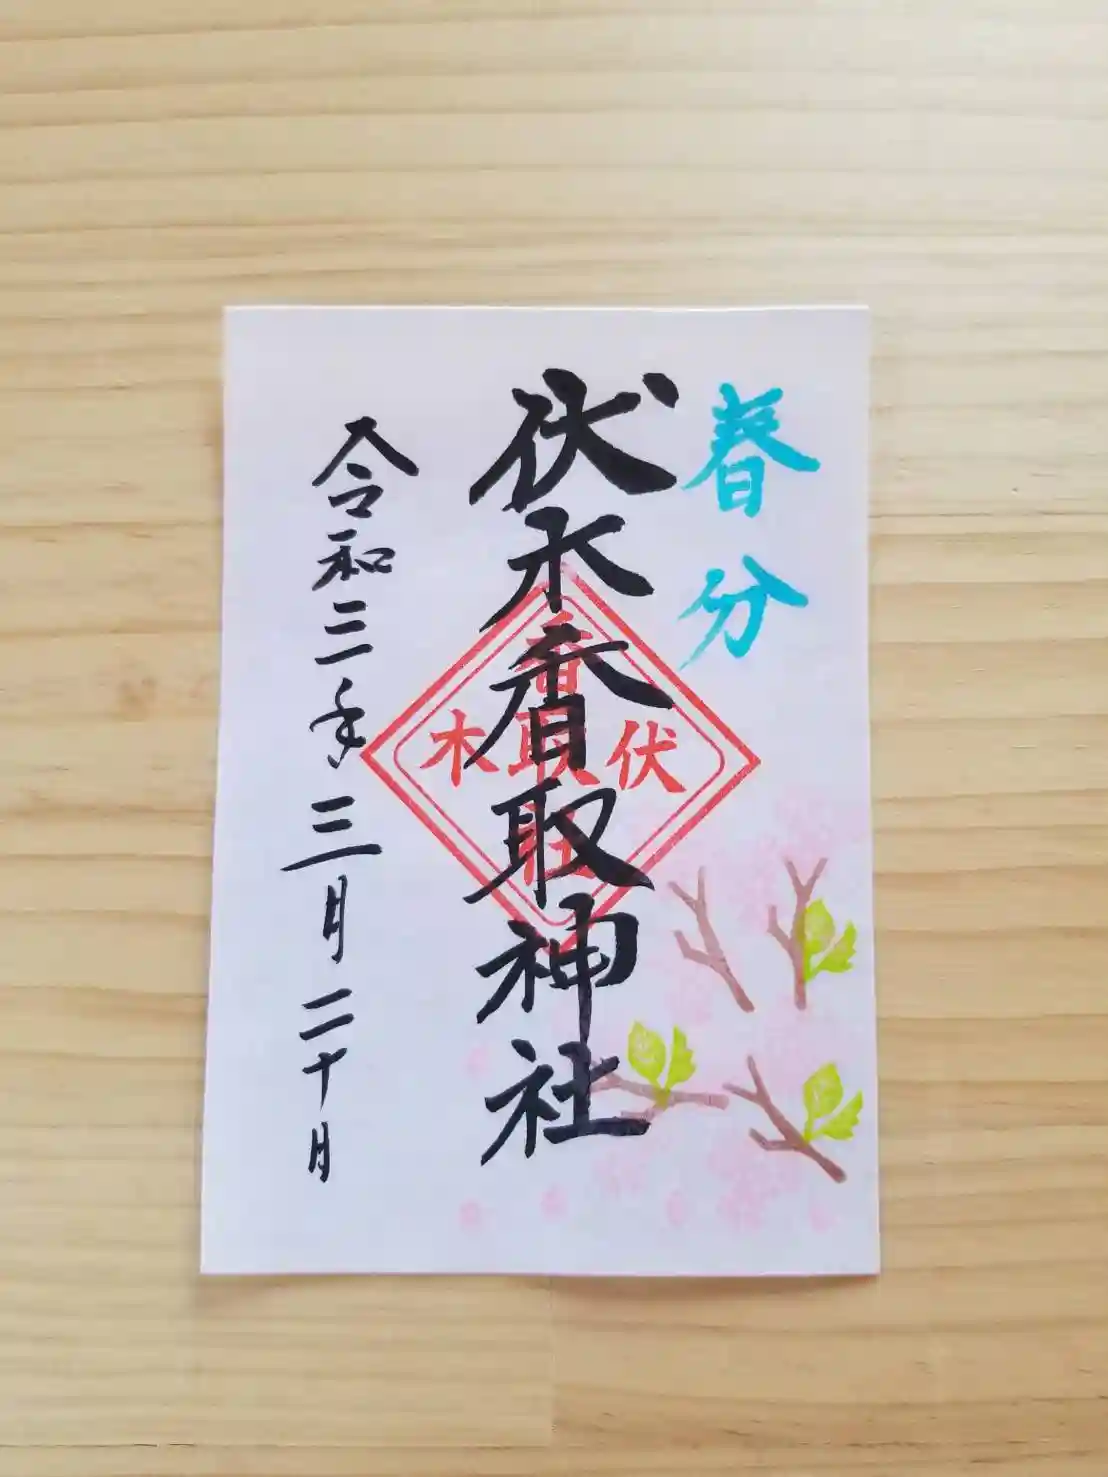 春分
伏木香取神社
令和三年三月二十日
伏木
香取社